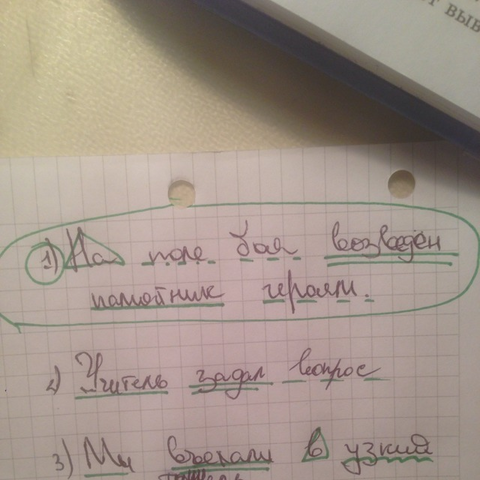 ВЫБ
1) На поле боя возведён
памятник героям.
2) Учитель задал вопрос
3) Мы въехали в узкий